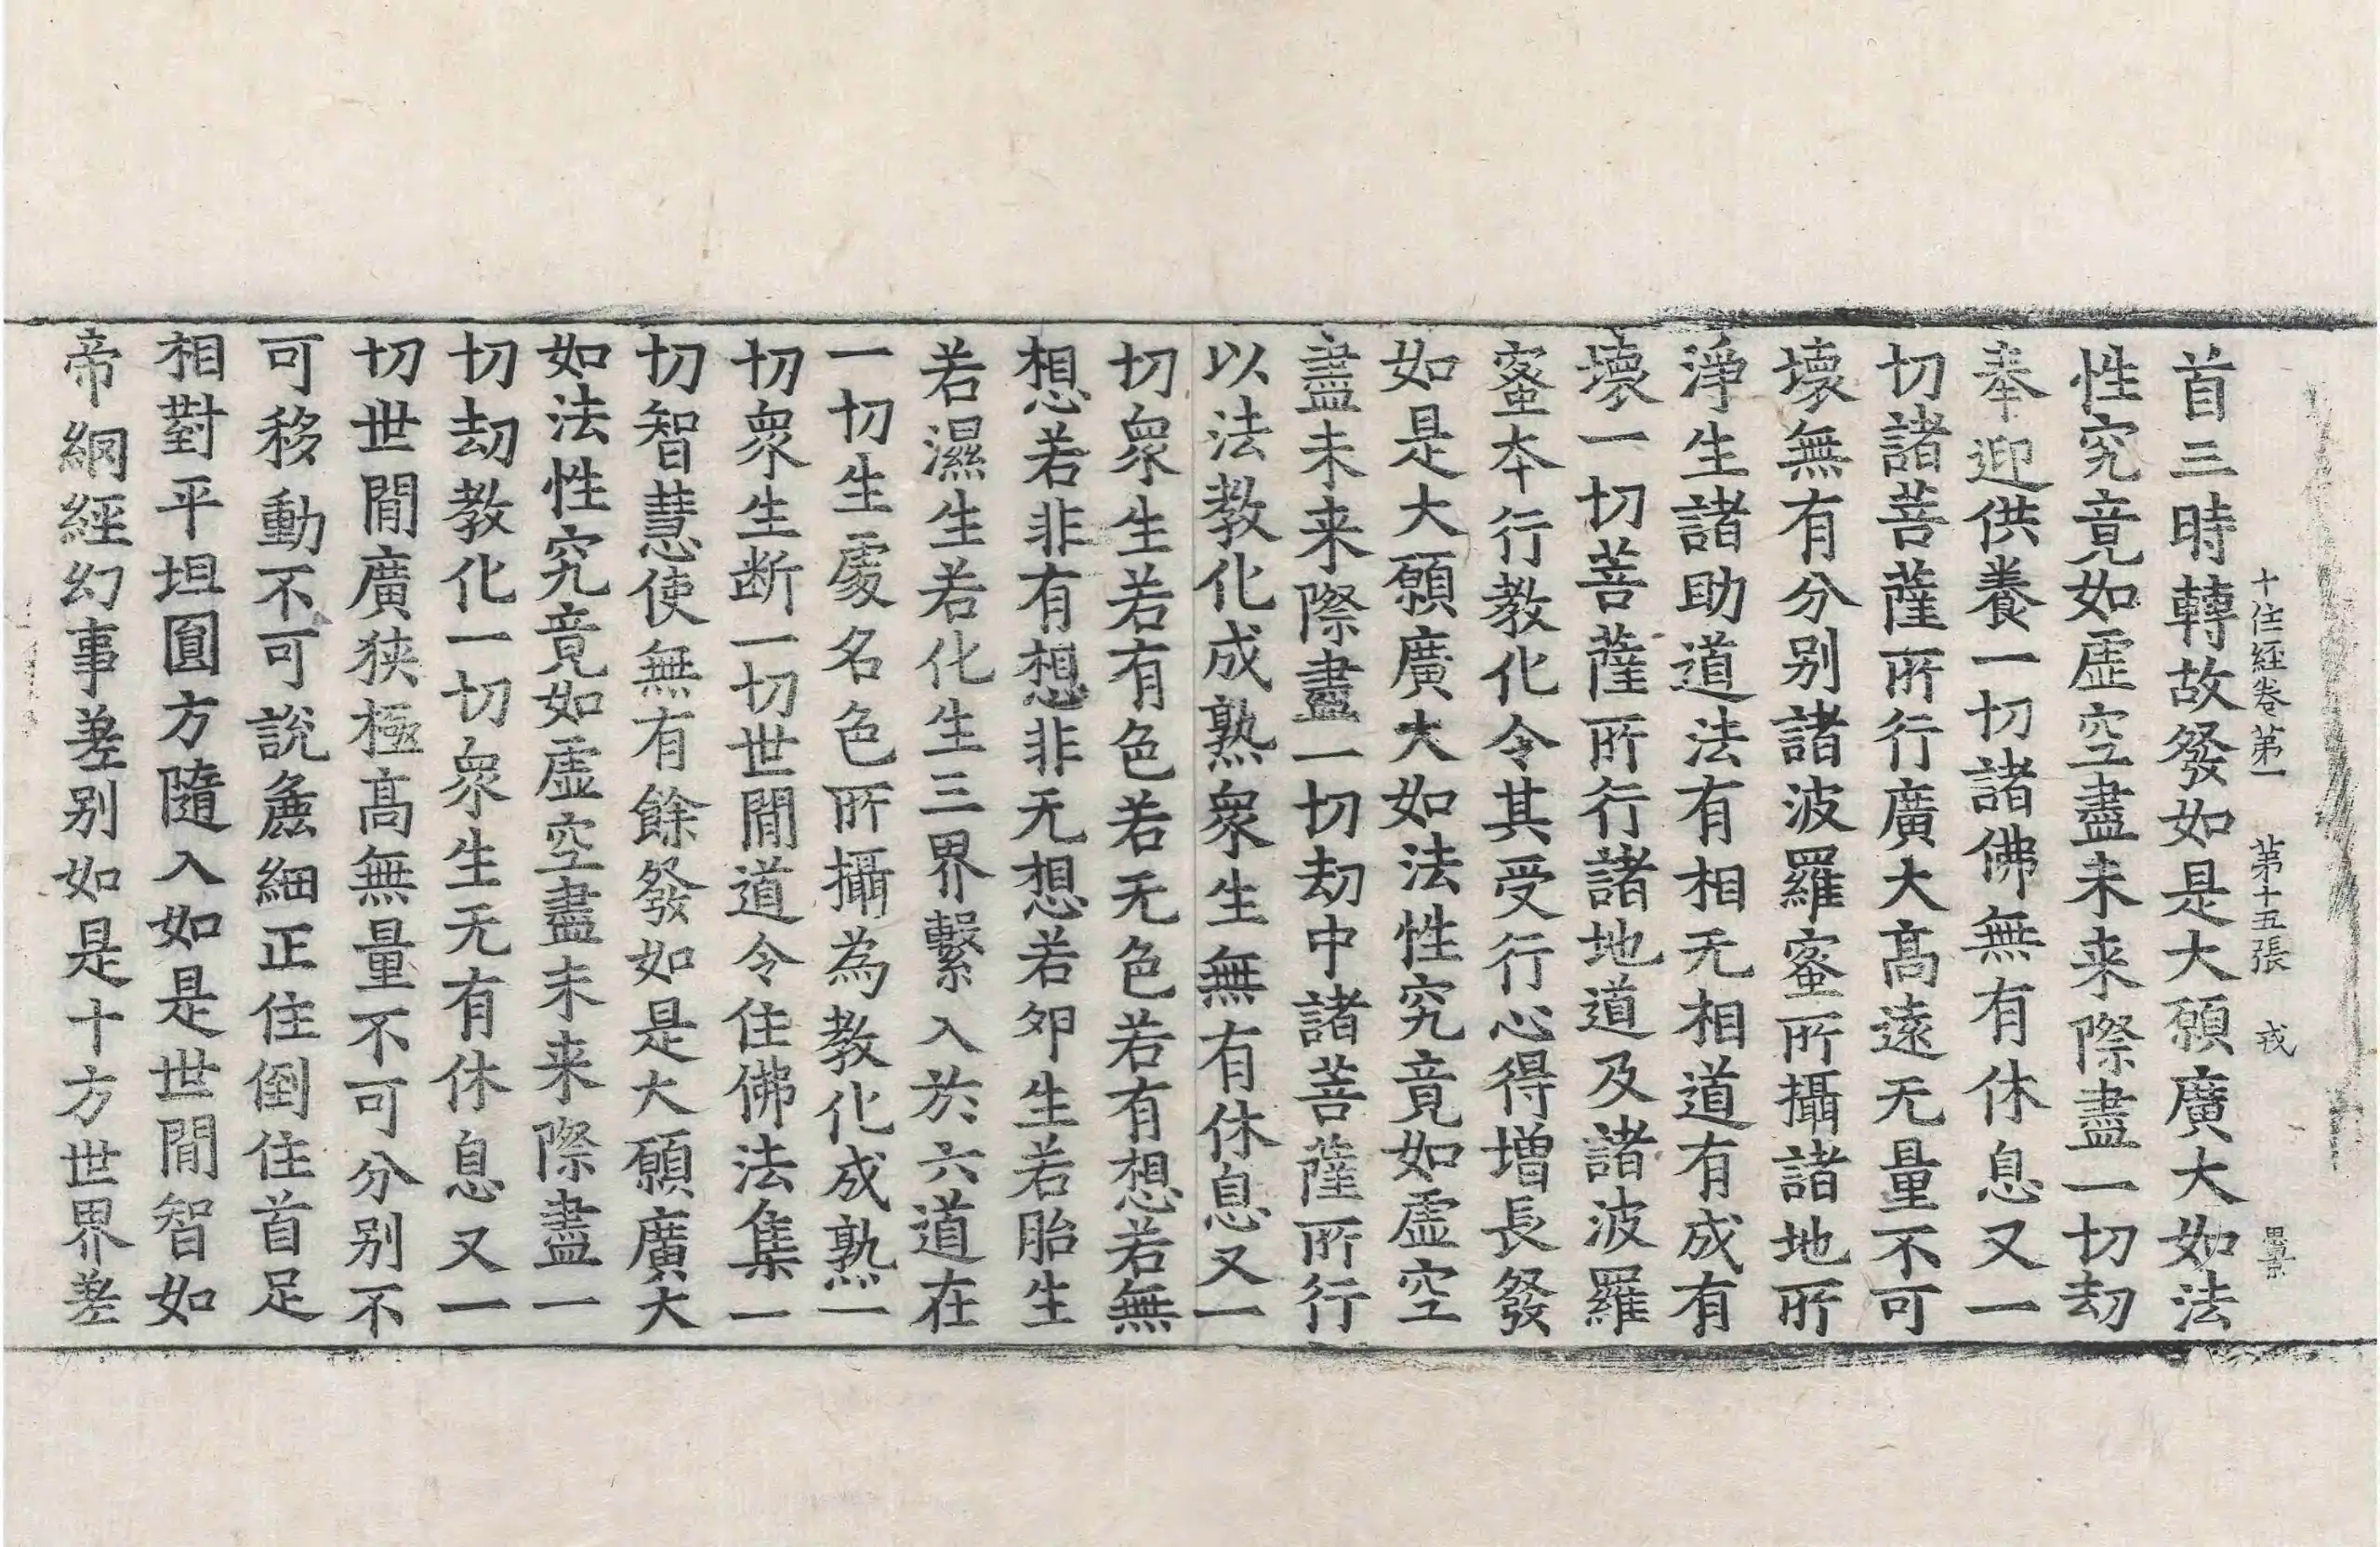 十住経卷第一 第十五張 戎
首三時轉故發如是大願廣大如法
性究竟如虛空盡未来際盡一切劫
奉迎供養一切諸佛無有休息又一
切諸菩薩所行廣大高遠无量不可
壞無有分别諸波羅蜜所攝諸地所
淨生諸助道法有相无相道有成有
壞一切菩薩所行諸地道及諸波羅
蜜本行教化令其受行心得增長發
如是大願廣大如法性究竟如虛空
盡未来際盡一切劫中諸菩薩所行
以法教化成熟衆生無有休息又一
切衆生若有色若无色若有想若無
想若非有想非无想若夘生若胎生
若濕生若化生三界繫入於六道在
一切生處名色所攝為教化成熟一
切衆生断一切世間道令住佛法集一
切智慧使無有餘發如是大願廣大
如法性究竟如虛空盡未来際盡一
切劫教化一切衆生无有休息又一
切世間廣狹極高無量不可分别不
可移動不可說麁細正住倒住首足
相對平坦圓方隨入如是世間智如
帝網經幻事差别如是十方世界差